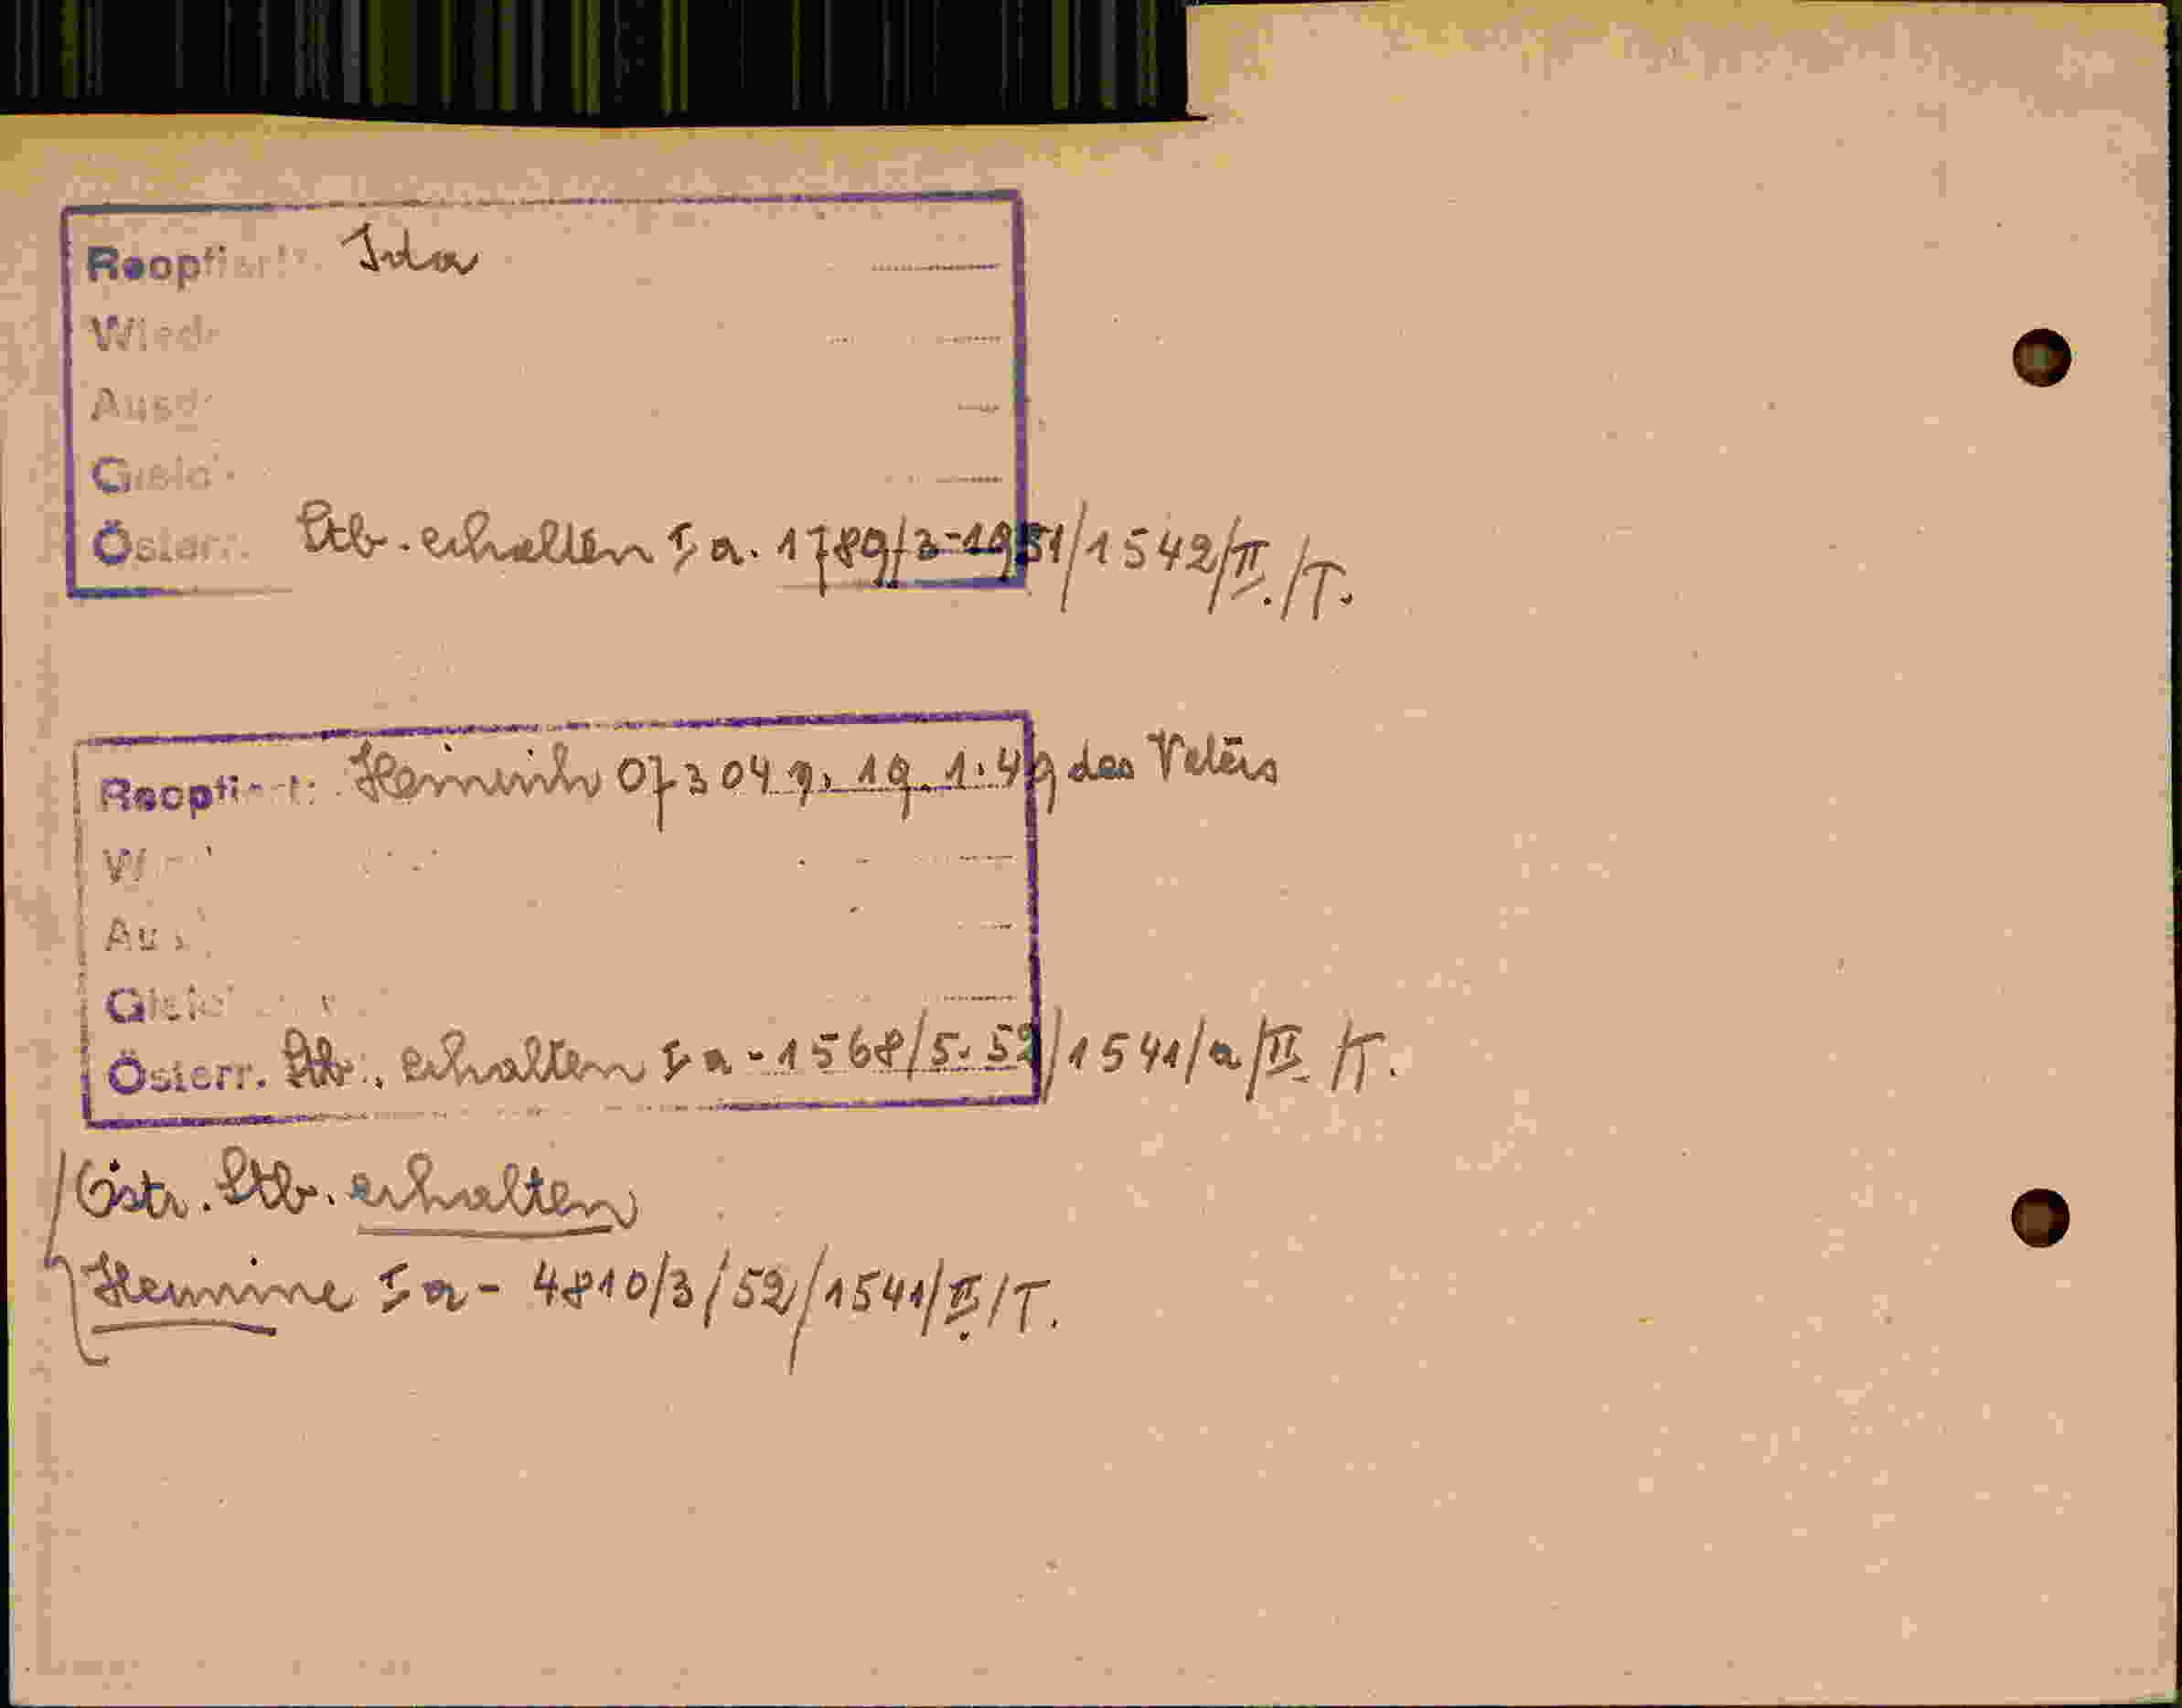 Reoptiert: Ida
Wied
Ausd
Gleic
Österr. Stb. erhalten I a. 1789/3-1951/1542/II./T.
Reoptiert: Heinrich 07304 v. 19.1.49 des Vaters
W
Au
Gleic
Österr. Stb. erhalten I a - 1568/5.52/1541/a/II /T.
Östr. Stb. erhalten
Hermine I a - 4810/3/52/1541/II/T.